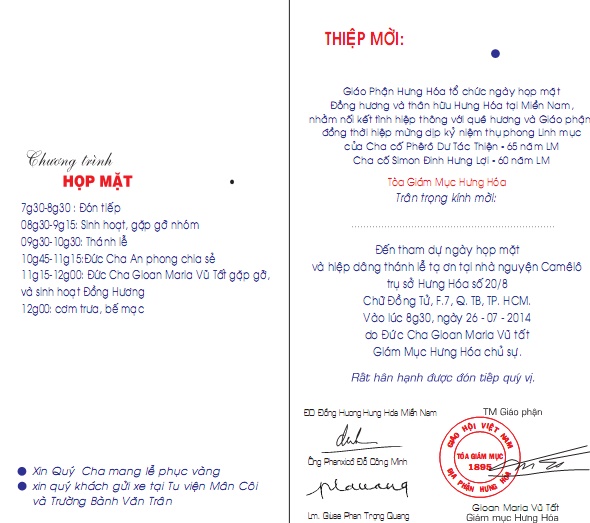 Chương trình
HỌP MẶT
7g30-8g30 : Đón tiếp
08g30-9g15: Sinh hoạt, gặp gỡ nhóm
09g30-10g30: Thánh lễ
10g45-11g15:Đức Cha An phong chia sẻ
11g15-12g00: Đức Cha Gioan Maria Vũ Tất gặp gỡ,
và sinh hoạt Đồng Hương
12g00: cơm trưa, bế mạc
Xin Quý Cha mang lễ phục vàng
xin quý khách gửi xe tại Tu viện Mân Côi
và Trường Bành Văn Trân
THIỆP MỜI:
Giáo Phận Hưng Hóa tổ chức ngày họp mặt
Đồng hương và thân hữu Hưng Hóa tại Miền Nam,
nhằm nối kết tình hiệp thông với quê hương và Giáo phận
đồng thời hiệp mừng dịp kỷ niệm thụ phong Linh mục
của Cha cố Phêrô Dư Tác Thiện - 65 năm LM
Cha cố Simon Đinh Hưng Lợi - 60 năm LM
Tòa Giám Mục Hưng Hóa
Trân trọng kính mời:
Đến tham dự ngày họp mặt
và hiệp dâng thánh lễ tạ ơn tại nhà nguyện Camêlô
trụ sở Hưng Hóa số 20/8
Chử Đồng Tử, F.7, Q. TB, TP. HCM.
Vào lúc 8g30, ngày 26 - 07 - 2014
do Đức Cha Gioan Maria Vũ tất
Giám Mục Hưng Hóa chủ sự.
Rất hân hạnh được đón tiếp quý vị.
ĐD Đồng Hương Hưng Hóa Miền Nam
TM Giáo phận
Ông Phanxicô Đỗ Công Minh
GIÁO HỘI VIỆT NAM
TÒA GIÁM MỤC
1895
ĐỊA PHẬN HƯNG HÓA
Lm. Giuse Phan Trọng Quang
Gioan Maria Vũ Tất
Giám mục Hưng Hóa